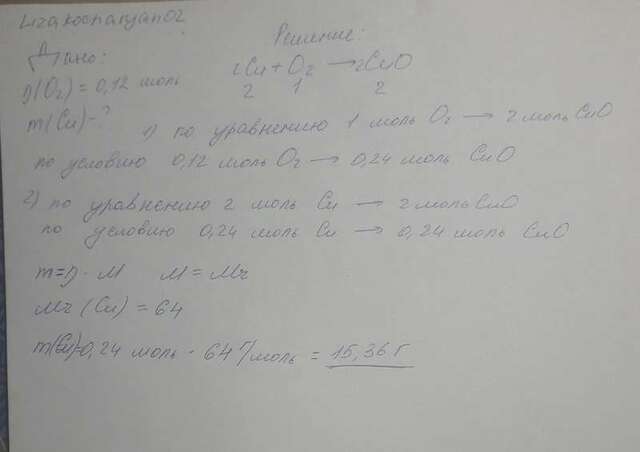 Lizakocharyan02
Решение:
Дано:
2Cu + O2 → 2CuO
2 1 2
n(O2) = 0,12 моль
m(Cu) - ?
1) по уравнению 1 моль O2 → 2 моль CuO
по условию 0,12 моль O2 → 0,24 моль CuO
2) по уравнению 2 моль Cu → 2 моль CuO
по условию 0,24 моль Cu → 0,24 моль CuO
m = n · M M = Mr
Mr (Cu) = 64
m(Cu) = 0,24 моль · 64 г/моль = 15,36 г